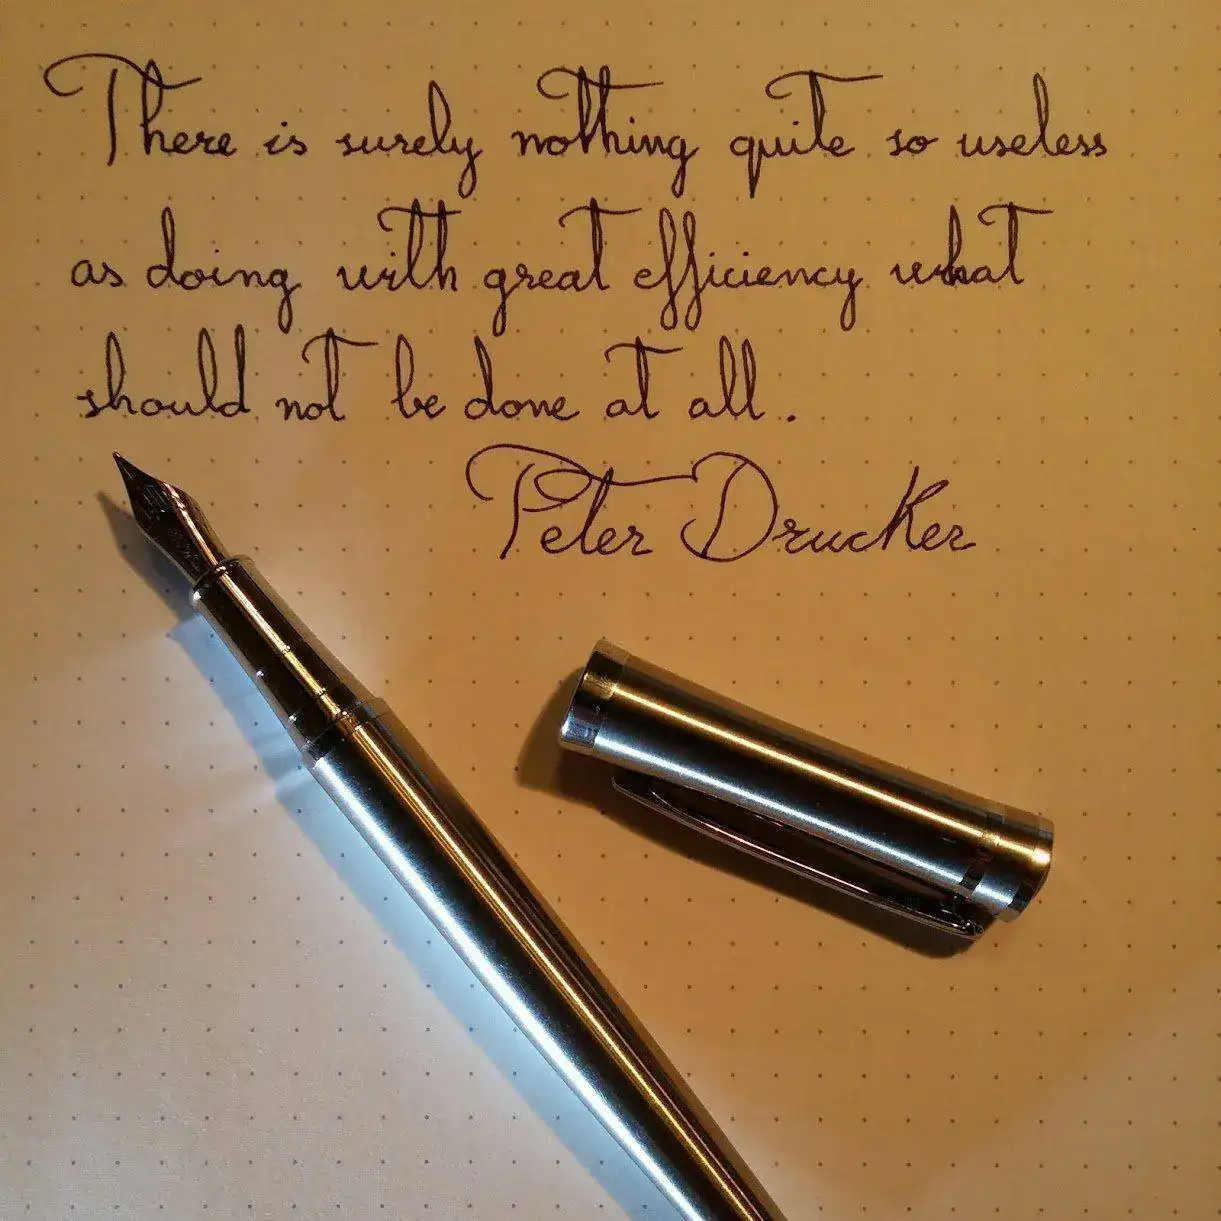 There is surely nothing quite so useless
as doing with great efficiency what
should not be done at all.
Peter Drucker